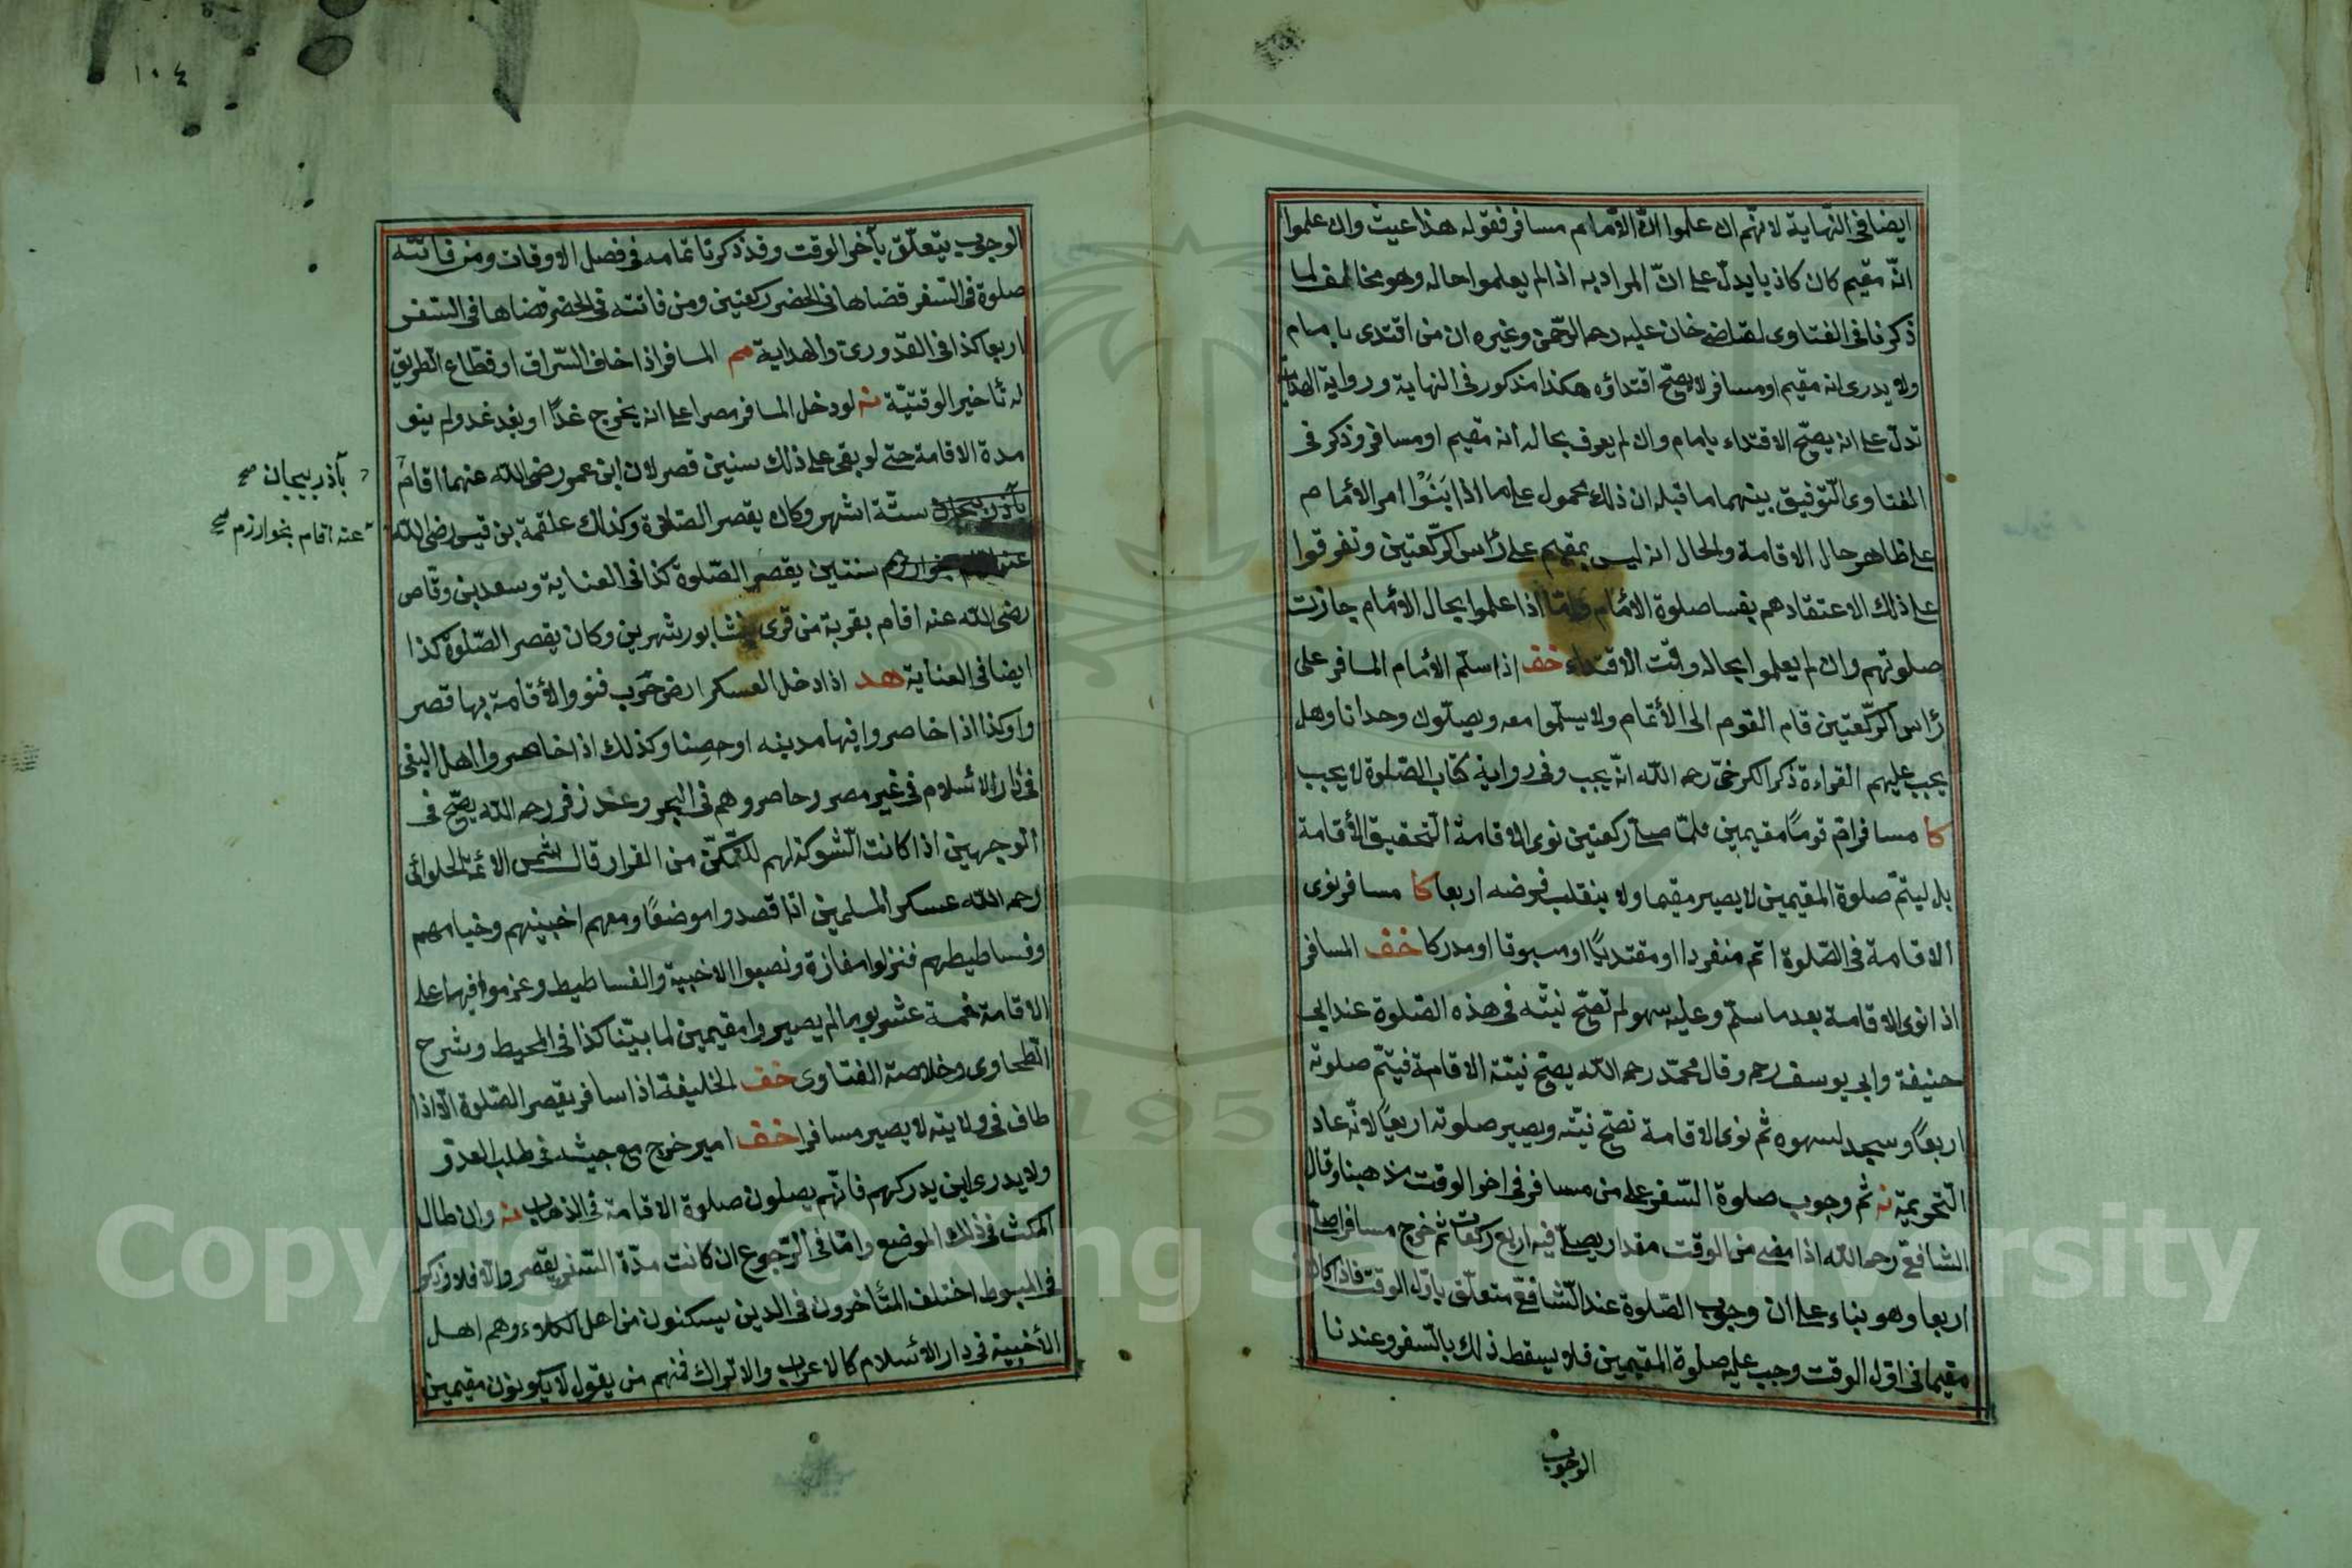 ايضا فى النّهاية لانّهم ان علموا انّ الامام مسافر فقوله هذا عبث وان علموا
انّه مقيم كان كاذبا يدلّ على انّ المراد به اذا لم يعلموا حاله وهو مخالف لما
ذكرنا فى الفتاوى لقاضى خان عليه رحمة الرّحمن وغيره ان من اقتدى بامام
ولا يدرى انه مقيم او مسافر لا يصحّ اقتداؤه هكذا مذكور فى النهاية ورواية الهداية
تدلّ على انه يصحّ الاقتداء بامام وان لم يعرف بحاله انه مقيم او مسافر وذكر فى
الفتاوى التّوفيق بينهما ما قبله ان ذلك محمول على ما اذا بَنَوْا امر الامام
على ظاهر حال الاقامة والحال انه ليس بمقيم على رأس الرّكعتين وتفرقوا
على ذلك الاعتقاد هم يفسد صلوة الامام وامّا اذا علموا بحال الامام جازت
صلوتهم وان لم يعلموا بحاله وقت الاقتداء خف اذا سلّم الامام المسافر على
رأس الرّكعتين قام القوم الى الاتمام ولا يسلّموا معه ويصلّون وحدانا وهل
يجب عليهم القراءة ذكر الكرخىّ رحمه الله انّه يجب وفى رواية كتاب الصّلوة لا يجب
كا مسافر امّ قومًا مقيمين فلمّا صلّى ركعتين نوى الاقامة لا لتحقيق الاقامة
بل ليتمّ صلوة المقيمين لا يصير مقيما ولا ينقلب فرضه اربعا كا مسافر نوى
الاقامة فى الصّلوة اتم منفردا او مقتديًا او مسبوقا او مدركا خف المسافر
اذا نوى الاقامة بعد ما سلّم وعليه سهو لم تصحّ نيّته فى هذه الصّلوة عند ابى
حنيفة وابى يوسف رحم وقال محمّد رحمه الله يصحّ نيّته الاقامة فيتمّ صلوته
اربعًا وسجد لسهوه ثم نوى الاقامة تصحّ نيّته ويصير صلوته اربعًا لانّه عاد
التّحريمة نه ثم وجوب صلوة السّفر على من مسافر فى اخر الوقت مذهبنا وقال
الشافعى رحمه الله اذا مضى من الوقت مقدار يصلّى فيه اربع ركعات ثم خرج مسافرا صلّى
اربعا وهو بناء على ان وجوب الصّلوة عند الشّافعىّ متعلّق باوّل الوقت فاذا كان
مقيما فى اوّل الوقت وجب عليه صلوة المقيمين فلا يسقط ذلك بالسّفر وعندنا
الوجوب
١٠٤
الوجوب يتعلّق بآخر الوقت وقد ذكرنا تمامه فى فصل الاوقات ومن فاتته
صلوة فى السّفر قضاها فى الحضر ركعتين ومن فاتته فى الحضر قضاها فى السّفر
اربعا كذا فى القدورى والهداية مم المسافر اذا خاف السّراق او قطّاع الطريق
له تأخير الوقتيّة نه لو دخل المسافر مصرا على انه يخرج غدًا او بعد غد ولم ينو
مدة الاقامة حتى لو بقى على ذلك سنين قصر لان ابن عمر رضى الله عنهما اقام
بآذربيجان ستّة اشهر وكان يقصر الصّلاة وكذلك علقمة بن قيس رضى الله
سنتين يقصر الصّلوة كذا فى العناية وسعد بن وقاص
رضى الله عنه اقام بقرية من قرى نيشابور شهرين وكان يقصر الصّلوة كذا
ايضا فى العناية هد اذا دخل العسكر ارض حرب فنووا الاقامة بها قصر
وا وكذا اذا حاصروا فيها مدينه او حصنا وكذلك اذا حاصروا اهل البغى
فى دار الاسلام فى غير مصر وحاصروهم فى البحر وعند زفر رحمه الله يصحّ فى
الوجهين اذا كانت الشّوكة لهم للتّمكّن من القرار قال شمس الائمّة الحلوائى
رحمه الله عسكر المسلمين اذا قصدوا موضعًا ومعهم اخبيتهم وخيامهم
وفساطيطهم فنزلوا مفازة ونصبوا الاخبية والفساطيط وعزموا فيها على
الاقامة خمسة عشر يوما لم يصيروا مقيمين لما بيّنا كذا فى المحيط وشرح
الطّحاوى وخلاصة الفتاوى خف الخليفة اذا سافر يقصر الصّلوة الّا اذا
طاف فى ولايته لا يصير مسافرا خف امير خرج مع جيشه فى طلب العدوّ
ولا يدرى اين يدركهم فانّهم يصلون صلوة الاقامة فى الذهاب نه وان طال
المكث فى ذلك الموضع وامّا فى الرّجوع ان كانت مدّة السّفر يقصر والّا فلا وذكر
فى المبسوط اختلف المتأخرون فى الذين يسكنون من اهل الكلاء وهم اهل
الأخبية فى دار الاسلام كالاعراب والاتراك فمنهم من يقول لا يكونون مقيمين
بآذربيجان صح
عنه اقام بخوارزم صح
Copyright © King Saud University
1957